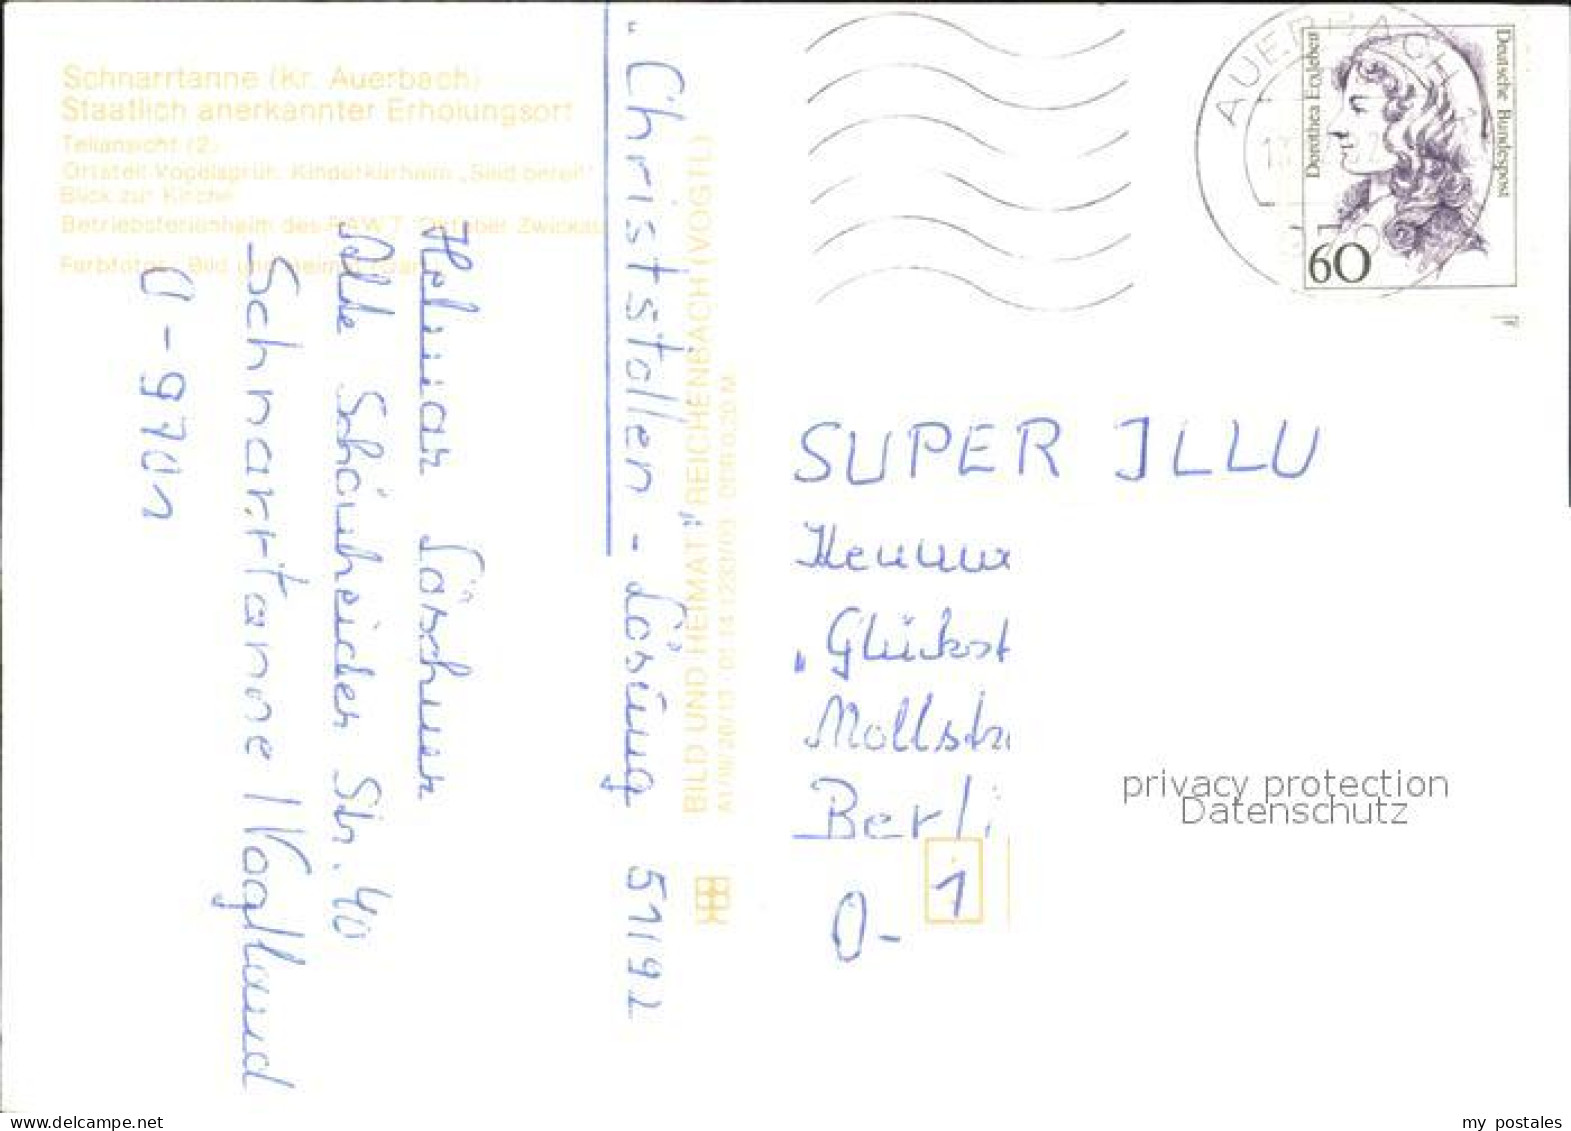 Schnarrtanne (Kr. Auerbach)
Staatlich anerkannter Erholungsort
Teilansicht (2)
Ortsteil Vogelsgrün, Kinderkurheim „Seid bereit"
Blick zur Kirche
Betriebsferienheim des RAW 7. Oktober Zwickau
Farbfotos: Bild und Heimat
BILD UND HEIMAT REICHENBACH (VOGTL)
Alte Schönheider Str. 40
Schnarrtanne / Vogtland
O-9701
„Christstollen"-Lösung 51192
AUERBACH
Deutsche Bundespost
Dorothea Erxleben
60
SUPER ILLU
Kennw
„Glückst
Mollstr
Berli
O- 1
privacy protection
Datenschutz
my postales
Los mejores precios en la web